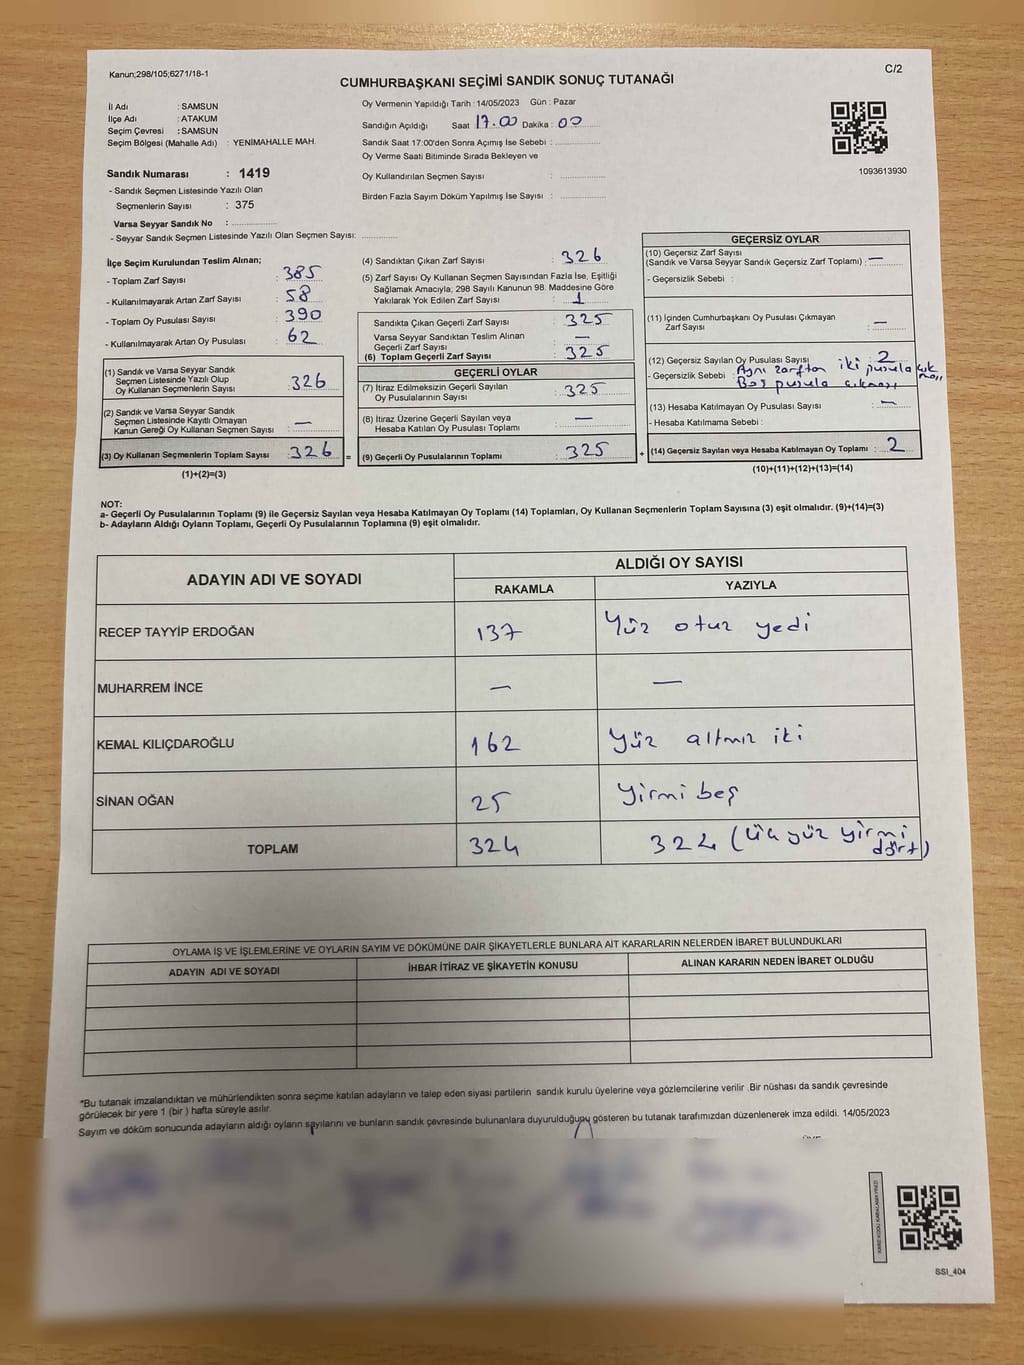 Kanun;298/105;6271/18-1
C/2
CUMHURBAŞKANI SEÇİMİ SANDIK SONUÇ TUTANAĞI
İl Adı : SAMSUN
İlçe Adı : ATAKUM
Seçim Çevresi : SAMSUN
Seçim Bölgesi (Mahalle Adı) : YENİMAHALLE MAH.
Sandık Numarası : 1419
- Sandık Seçmen Listesinde Yazılı Olan
Seçmenlerin Sayısı : 375
Varsa Seyyar Sandık No :
- Seyyar Sandık Seçmen Listesinde Yazılı Olan Seçmen Sayısı:
Oy Vermenin Yapıldığı Tarih : 14/05/2023 Gün : Pazar
Sandığın Açıldığı Saat 17.00 Dakika : 00
Sandık Saat 17:00'den Sonra Açımış İse Sebebi :
Oy Verme Saati Bitiminde Sırada Bekleyen ve
Oy Kullandırılan Seçmen Sayısı :
Birden Fazla Sayım Döküm Yapılmış İse Sayısı :
1093613930
İlçe Seçim Kurulundan Teslim Alınan;
- Toplam Zarf Sayısı : 385
- Kullanılmayarak Artan Zarf Sayısı : 58
- Toplam Oy Pusulası Sayısı : 390
- Kullanılmayarak Artan Oy Pusulası : 62
(1) Sandık ve Varsa Seyyar Sandık
Seçmen Listesinde Yazılı Olup
Oy Kullanan Seçmenlerin Sayısı : 326
(2) Sandık ve Varsa Seyyar Sandık
Seçmen Listesinde Kayıtlı Olmayan
Kanun Gereği Oy Kullanan Seçmen Sayısı : —
(3) Oy Kullanan Seçmenlerin Toplam Sayısı : 326
(1)+(2)=(3)
(4) Sandıktan Çıkan Zarf Sayısı : 326
(5) Zarf Sayısı Oy Kullanan Seçmen Sayısından Fazla İse, Eşitliği
Sağlamak Amacıyla; 298 Sayılı Kanunun 98. Maddesine Göre
Yakılarak Yok Edilen Zarf Sayısı : 1
Sandıkta Çıkan Geçerli Zarf Sayısı : 325
Varsa Seyyar Sandıktan Teslim Alınan
Geçerli Zarf Sayısı : —
(6) Toplam Geçerli Zarf Sayısı : 325
GEÇERLİ OYLAR
(7) İtiraz Edilmeksizin Geçerli Sayılan
Oy Pusulalarının Sayısı : 325
(8) İtiraz Üzerine Geçerli Sayılan veya
Hesaba Katılan Oy Pusulası Toplamı : —
= (9) Geçerli Oy Pusulalarının Toplamı : 325
GEÇERSİZ OYLAR
(10) Geçersiz Zarf Sayısı
(Sandık ve Varsa Seyyar Sandık Geçersiz Zarf Toplamı) : —
- Geçersizlik Sebebi :
(11) İçinden Cumhurbaşkanı Oy Pusulası Çıkmayan
Zarf Sayısı : —
(12) Geçersiz Sayılan Oy Pusulası Sayısı : 2
- Geçersizlik Sebebi : Aynı zarftan iki pusula çıkması
Boş pusula çıkması
(13) Hesaba Katılmayan Oy Pusulası Sayısı : —
- Hesaba Katılmama Sebebi :
+ (14) Geçersiz Sayılan veya Hesaba Katılmayan Oy Toplamı : 2
(10)+(11)+(12)+(13)=(14)
NOT:
a- Geçerli Oy Pusulalarının Toplamı (9) ile Geçersiz Sayılan veya Hesaba Katılmayan Oy Toplamı (14) Toplamları, Oy Kullanan Seçmenlerin Toplam Sayısına (3) eşit olmalıdır. (9)+(14)=(3)
b- Adayların Aldığı Oyların Toplamı, Geçerli Oy Pusulalarının Toplamına (9) eşit olmalıdır.
ADAYIN ADI VE SOYADI
ALDIĞI OY SAYISI
RAKAMLA YAZIYLA
RECEP TAYYİP ERDOĞAN 137 Yüz otuz yedi
MUHARREM İNCE — —
KEMAL KILIÇDAROĞLU 162 Yüz altmış iki
SİNAN OĞAN 25 Yirmi beş
TOPLAM 324 324 (Üç yüz yirmi dört)
OYLAMA İŞ VE İŞLEMLERİNE VE OYLARIN SAYIM VE DÖKÜMÜNE DAİR ŞİKAYETLERLE BUNLARA AİT KARARLARIN NELERDEN İBARET BULUNDUKLARI
ADAYIN ADI VE SOYADI İHBAR İTİRAZ VE ŞİKAYETİN KONUSU ALINAN KARARIN NEDEN İBARET OLDUĞU
*Bu tutanak imzalandıktan ve mühürlendikten sonra seçime katılan adayların ve talep eden siyasi partilerin sandık kurulu üyelerine veya gözlemcilerine verilir .Bir nüshası da sandık çevresinde
görülecek bir yere 1 (bir ) hafta süreyle asılır.
Sayım ve döküm sonucunda adayların aldığı oyların sayılarını ve bunların sandık çevresinde bulunanlara duyurulduğunu gösteren bu tutanak tarafımızdan düzenlenerek imza edildi. 14/05/2023
KARE KODU KARALAMAYINIZ!
SSI_404